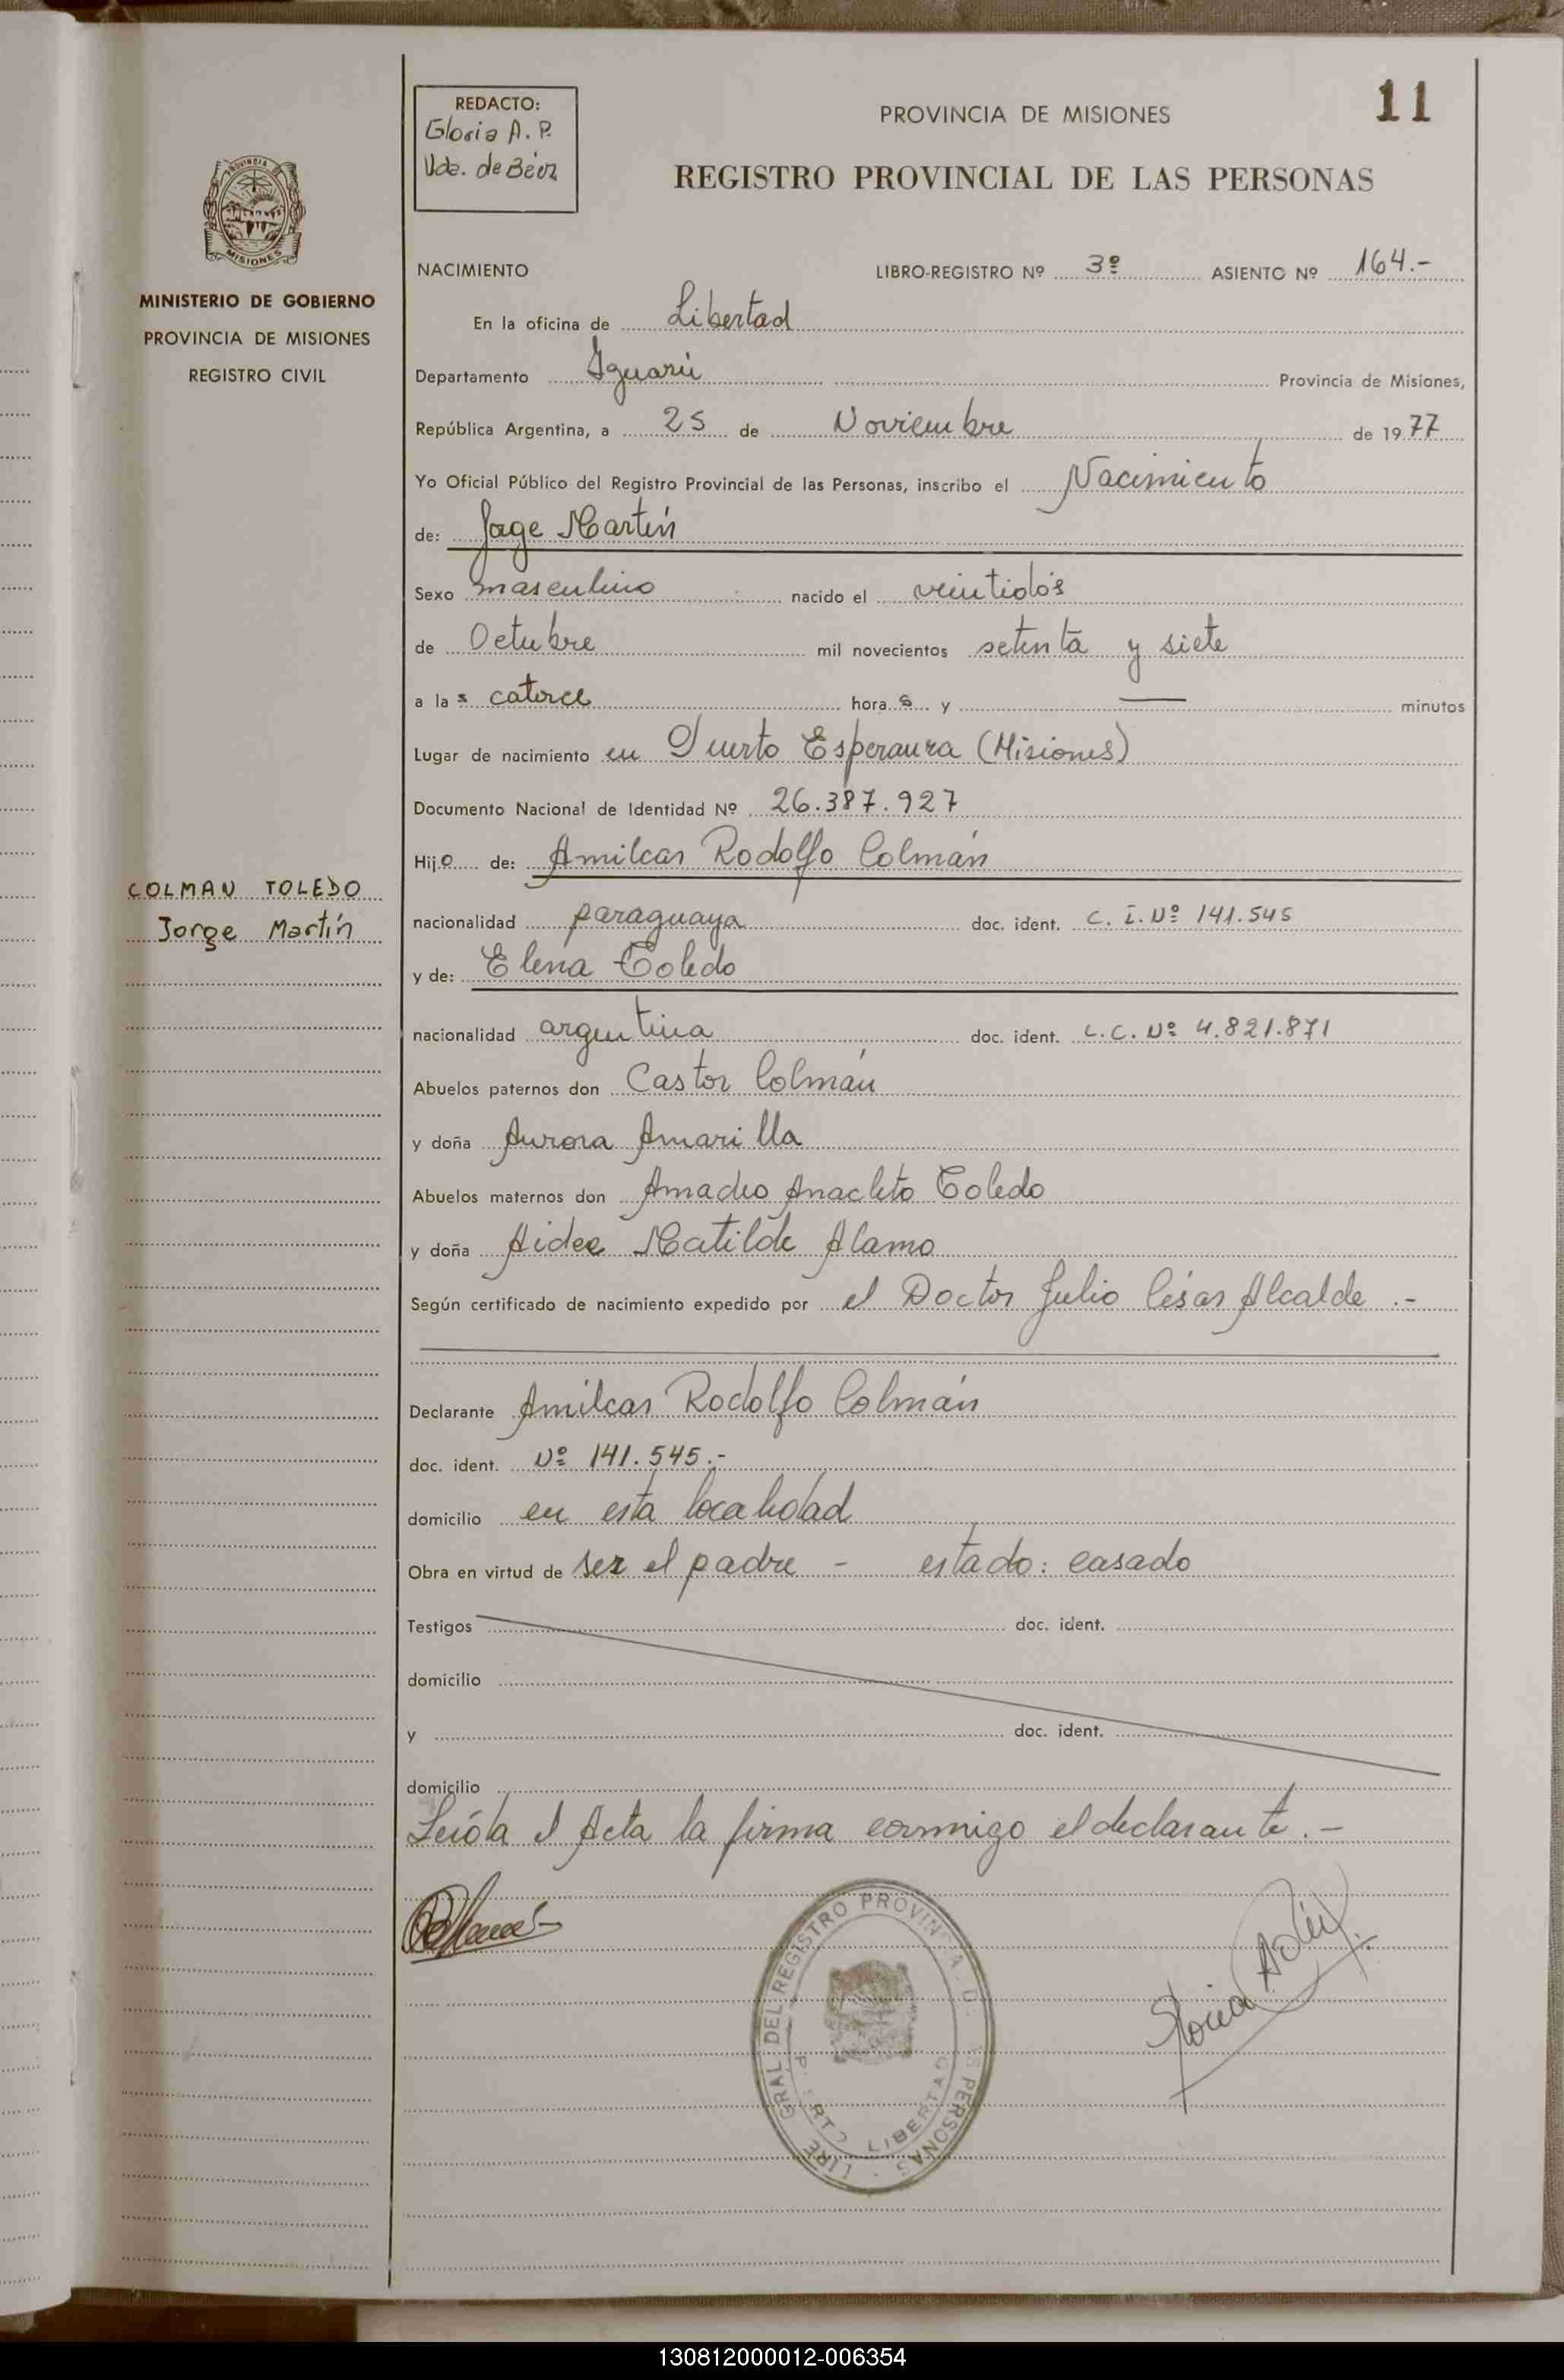 11
REDACTO:
Gloria A. P.
Vda. de Báez
PROVINCIA DE MISIONES
REGISTRO PROVINCIAL DE LAS PERSONAS
PROVINCIA
MISIONES
MINISTERIO DE GOBIERNO
PROVINCIA DE MISIONES
REGISTRO CIVIL
COLMAN TOLEDO
Jorge Martín
NACIMIENTO LIBRO-REGISTRO Nº 3º ASIENTO Nº 164.-
En la oficina de Libertad
Departamento Iguazú Provincia de Misiones,
República Argentina, a 25 de Noviembre de 1977
Yo Oficial Público del Registro Provincial de las Personas, inscribo el Nacimiento
de: Jorge Martín
Sexo masculino nacido el veintidós
de Octubre mil novecientos setenta y siete
a las catorce horas y — minutos
Lugar de nacimiento en Puerto Esperanza (Misiones)
Documento Nacional de Identidad Nº 26.387.927
Hijo de: Amilcar Rodolfo Colmán
nacionalidad paraguaya doc. ident. C. I. Nº 141.545
y de: Elena Toledo
nacionalidad argentina doc. ident. L.C. Nº 4.821.871
Abuelos paternos don Castor Colmán
y doña Aurora Amarilla
Abuelos maternos don Amadeo Anacleto Toledo
y doña Aidee Matilde Alamo
Según certificado de nacimiento expedido por el Doctor Julio César Alcalde .-
Declarante Amilcar Rodolfo Colmán
doc. ident. Nº 141.545.-
domicilio en esta localidad
Obra en virtud de ser el padre - estado: casado
Testigos doc. ident.
domicilio
y doc. ident.
domicilio
Leída el Acta la firma conmigo el declarante.-
GRAL DEL REGISTRO PERSONAS
LIBERTAD
130812000012-006354